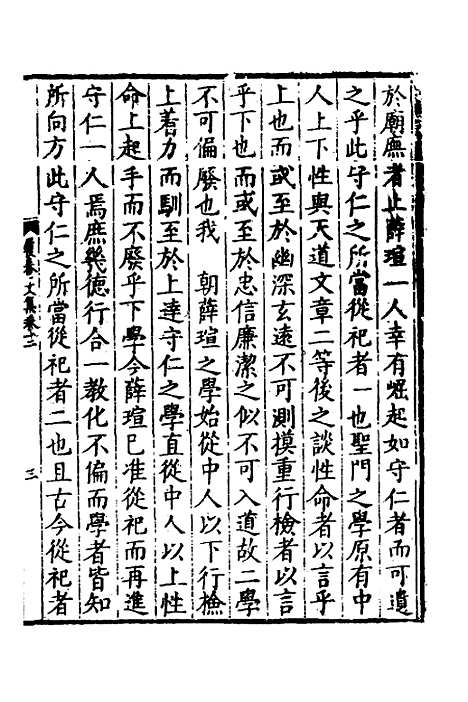 於廟廡者止薛瑄一人幸有崛起如守仁者而可遺
之乎此守仁之所當從祀者一也聖門之學原有中
人上下性與天道文章二等後之談性命者以言乎
上也而或至於幽深玄遠不可測摸重行檢者以言
乎下也而或至於忠信廉潔之似不可入道故二學
不可偏廢也我　朝薛瑄之學始從中人以下行檢
上着力而馴至於上達守仁之學直從中人以上性
命上起手而不廢乎下學今薛瑄已准從祀而再進
守仁一人焉庶幾德行合一教化不偏而學者皆知
所向方此守仁之所當從祀者二也且古今從祀者
文集卷十三
三